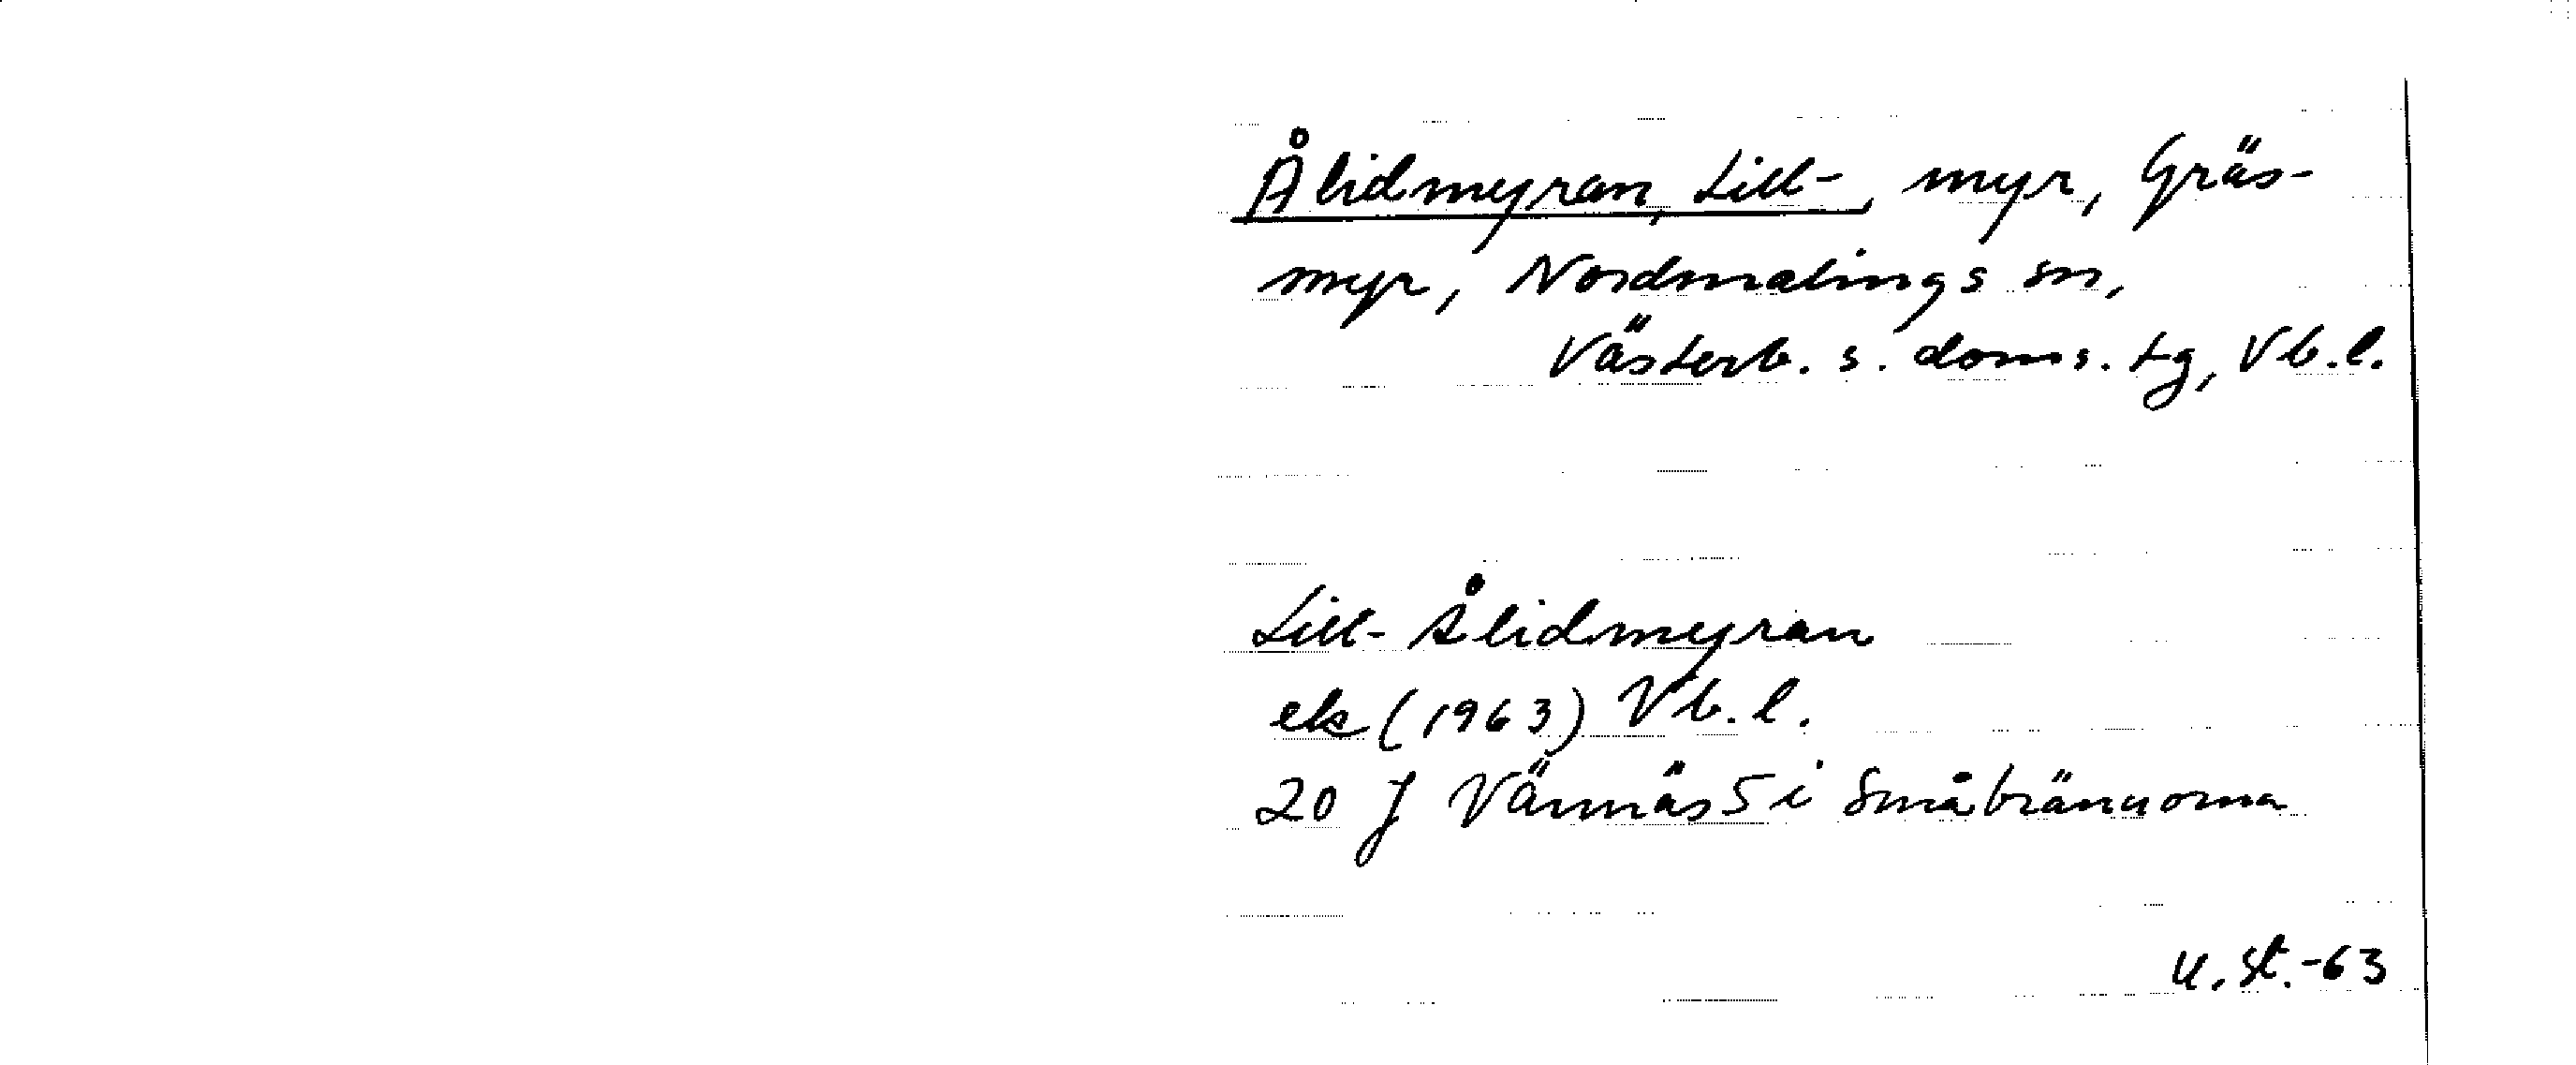 Ålidmyran, Lill-, myr, Gräs-
myr, Nordmalings sn,
Västerb. s. doms. tg, Vb.l.
Lill-Ålidmyran
ek (1963) Vb.l.
20 J Värnäs 5 i Småbrännorna
U. St. -63